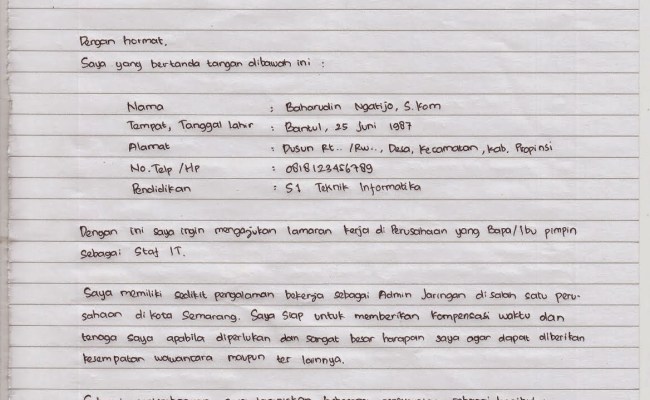 Dengan hormat,
Saya yang bertanda tangan dibawah ini :
Nama : Baharudin Ngatijo, S.Kom
Tempat, Tanggal lahir : Bantul, 25 Juni 1987
Alamat : Dusun Rt.. /Rw.., Desa, Kecamatan, Kab, Propinsi
No. Telp /Hp : 0818123456789
Pendidikan : S1 Teknik Informatika
Dengan ini saya ingin mengajukan lamaran kerja di Perusahaan yang Bapa/Ibu pimpin
sebagai Staf IT.
Saya memiliki sedikit pengalaman bekerja sebagai Admin Jaringan di salah satu peru-
sahaan di kota Semarang. Saya siap untuk memberikan kompensasi waktu dan
tenaga saya apabila diperlukan dan sangat besar harapan saya agar dapat diberikan
kesempatan wawancara maupun tes lainnya.